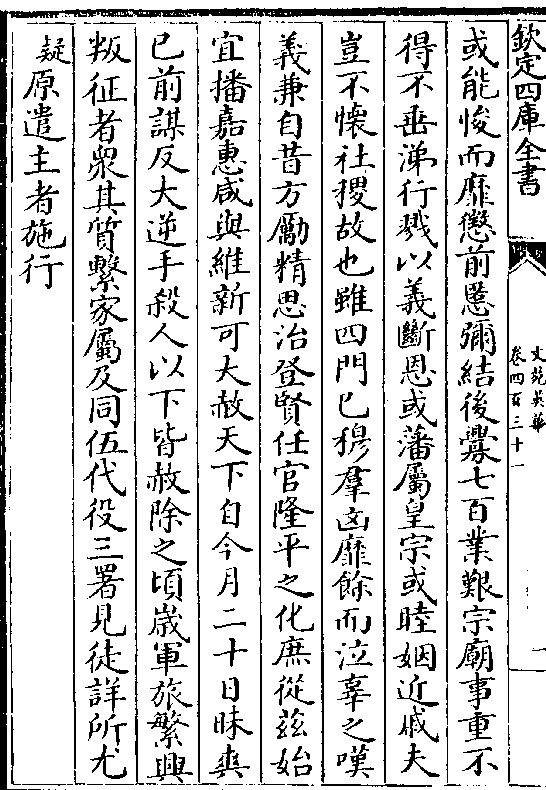 欽定四庫全書
文苑英華
卷四百三十一
一
或能悛而靡懲前慝彌結後釁七百業艱宗廟事重不
得不垂涕行戮以義斷恩或藩屬皇宗或睦姻近戚夫
豈不懷社稷故也雖四門已穆羣凶靡餘而泣辜之嘆
義兼自昔方勵精思治登賢任官隆平之化庶從兹始
宜播嘉惠咸與維新可大赦天下自今月二十日昧爽
已前謀反大逆手殺人以下皆赦除之頃嵗軍旅繁興
叛征者衆其質繫家屬及同伍代役三署見徒詳所尤
疑原遣主者施行